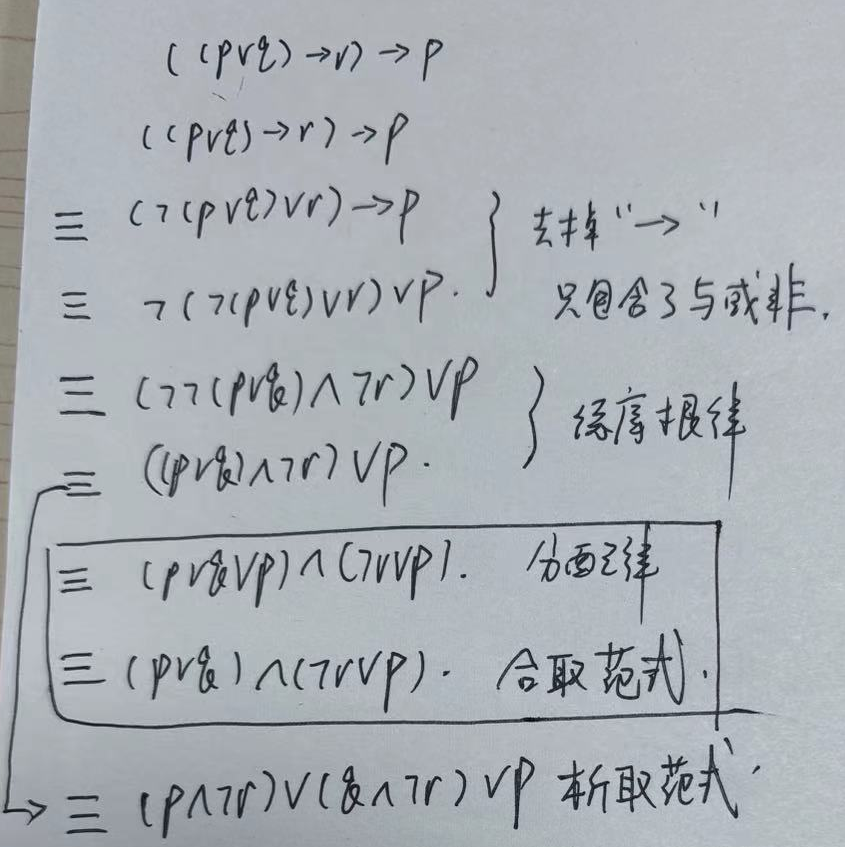 ((p∨q)→r)→p
((p∨q)→r)→p
≡ (¬(p∨q)∨r)→p
≡ ¬(¬(p∨q)∨r)∨p.
} 去掉"→"
只包含了与或非.
≡ (¬¬(p∨q)∧¬r)∨p
≡ ((p∨q)∧¬r)∨p.
} 德摩根律
≡ (p∨q∨p)∧(¬r∨p). 分配律
≡ (p∨q)∧(¬r∨p). 合取范式.
→ ≡ (p∧¬r)∨(q∧¬r)∨p 析取范式.